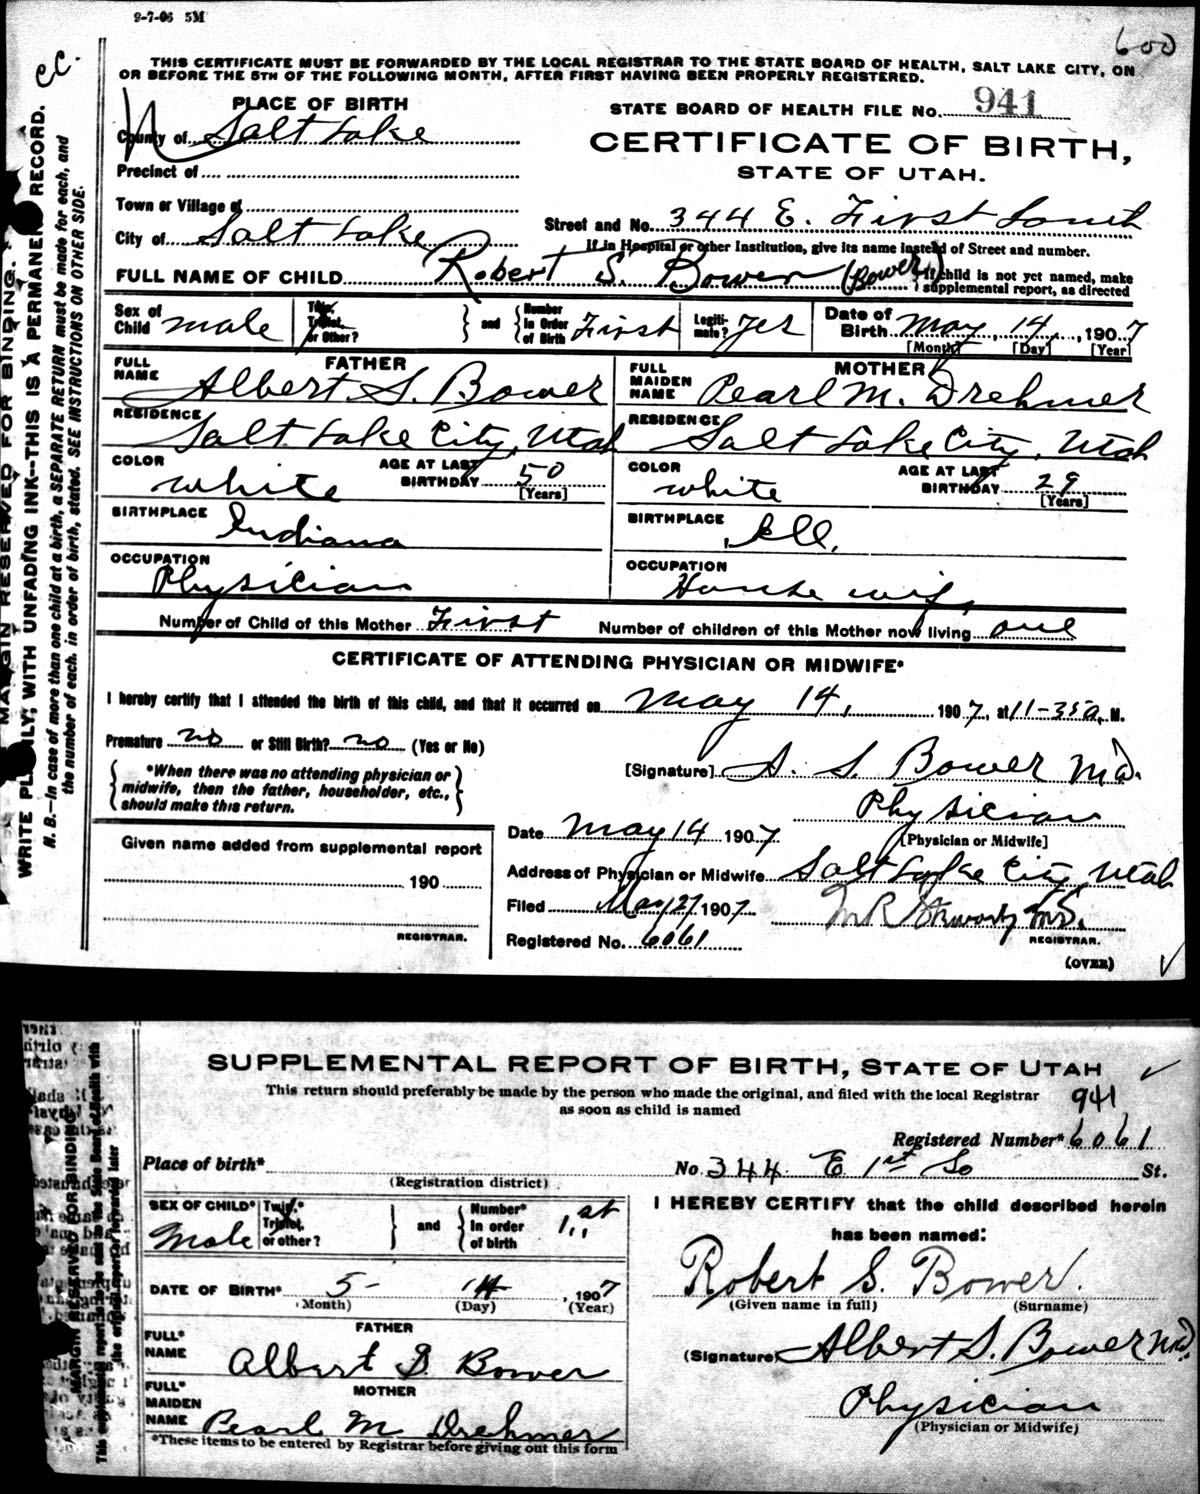 9-7-06 5M
600
CC.
THIS CERTIFICATE MUST BE FORWARDED BY THE LOCAL REGISTRAR TO THE STATE BOARD OF HEALTH, SALT LAKE CITY, ON
OR BEFORE THE 5TH OF THE FOLLOWING MONTH, AFTER FIRST HAVING BEEN PROPERLY REGISTERED.
PLACE OF BIRTH
STATE BOARD OF HEALTH FILE No. 941
County of Salt Lake
CERTIFICATE OF BIRTH,
STATE OF UTAH.
Precinct of
Town or Village of
Street and No. 344 E. First South
City of Salt Lake
If in Hospital or other Institution, give its name instead of Street and number.
FULL NAME OF CHILD Robert S. Bower (Bower) If child is not yet named, make
supplemental report, as directed
Sex of Child male
Twin, Triplet, or Other?
and
Number in Order of Birth First
Legiti-mate? Yes
Date of Birth May 14, 1907
[Month] [Day] [Year]
FATHER
FULL NAME Albert S. Bower
MOTHER
FULL MAIDEN NAME Pearl M. Drehmer
RESIDENCE Salt Lake City, Utah
RESIDENCE Salt Lake City, Utah
COLOR white
AGE AT LAST BIRTHDAY 50 [Years]
COLOR white
AGE AT LAST BIRTHDAY 29 [Years]
BIRTHPLACE Indiana
BIRTHPLACE Ill.
OCCUPATION Physician
OCCUPATION House wife
Number of Child of this Mother First
Number of children of this Mother now living one
CERTIFICATE OF ATTENDING PHYSICIAN OR MIDWIFE*
I hereby certify that I attended the birth of this child, and that it occurred on May 14, 1907, at 11-35 a. M.
Premature no or Still Birth? no (Yes or No)
*When there was no attending physician or
midwife, then the father, householder, etc.,
should make this return.
[Signature] A. S. Bower Md.
Physician
[Physician or Midwife]
Date May 14 1907
Given name added from supplemental report
190
REGISTRAR.
Address of Physician or Midwife Salt Lake City Utah
Filed May 27 1907
REGISTRAR.
Registered No. 6061
(OVER)
MARGIN RESERVED FOR BINDING.
WRITE PLAINLY, WITH UNFADING INK--THIS IS A PERMANENT RECORD.
N. B.--In case of more than one child at a birth, a SEPARATE RETURN must be made for each, and
the number of each, in order of birth, stated. SEE INSTRUCTIONS ON OTHER SIDE.
SUPPLEMENTAL REPORT OF BIRTH, STATE OF UTAH
This return should preferably be made by the person who made the original, and filed with the local Registrar
as soon as child is named
941
Registered Number* 6061
Place of birth*
(Registration district)
No 344 E 1st So St.
SEX OF CHILD* Male
Twin,* Triplet, or other?
and
Number* in order of birth 1st
I HEREBY CERTIFY that the child described herein
has been named:
Robert S. Bower.
(Given name in full) (Surname)
DATE OF BIRTH* 5- 14, 1907
(Month) (Day) (Year.)
FATHER
FULL* NAME Albert S. Bower
(Signature) Albert S. Bower Md.
MOTHER
FULL* MAIDEN NAME Pearl M Drehmer
Physician
(Physician or Midwife)
*These items to be entered by Registrar before giving out this form
MARGIN RESERVED FOR BINDING